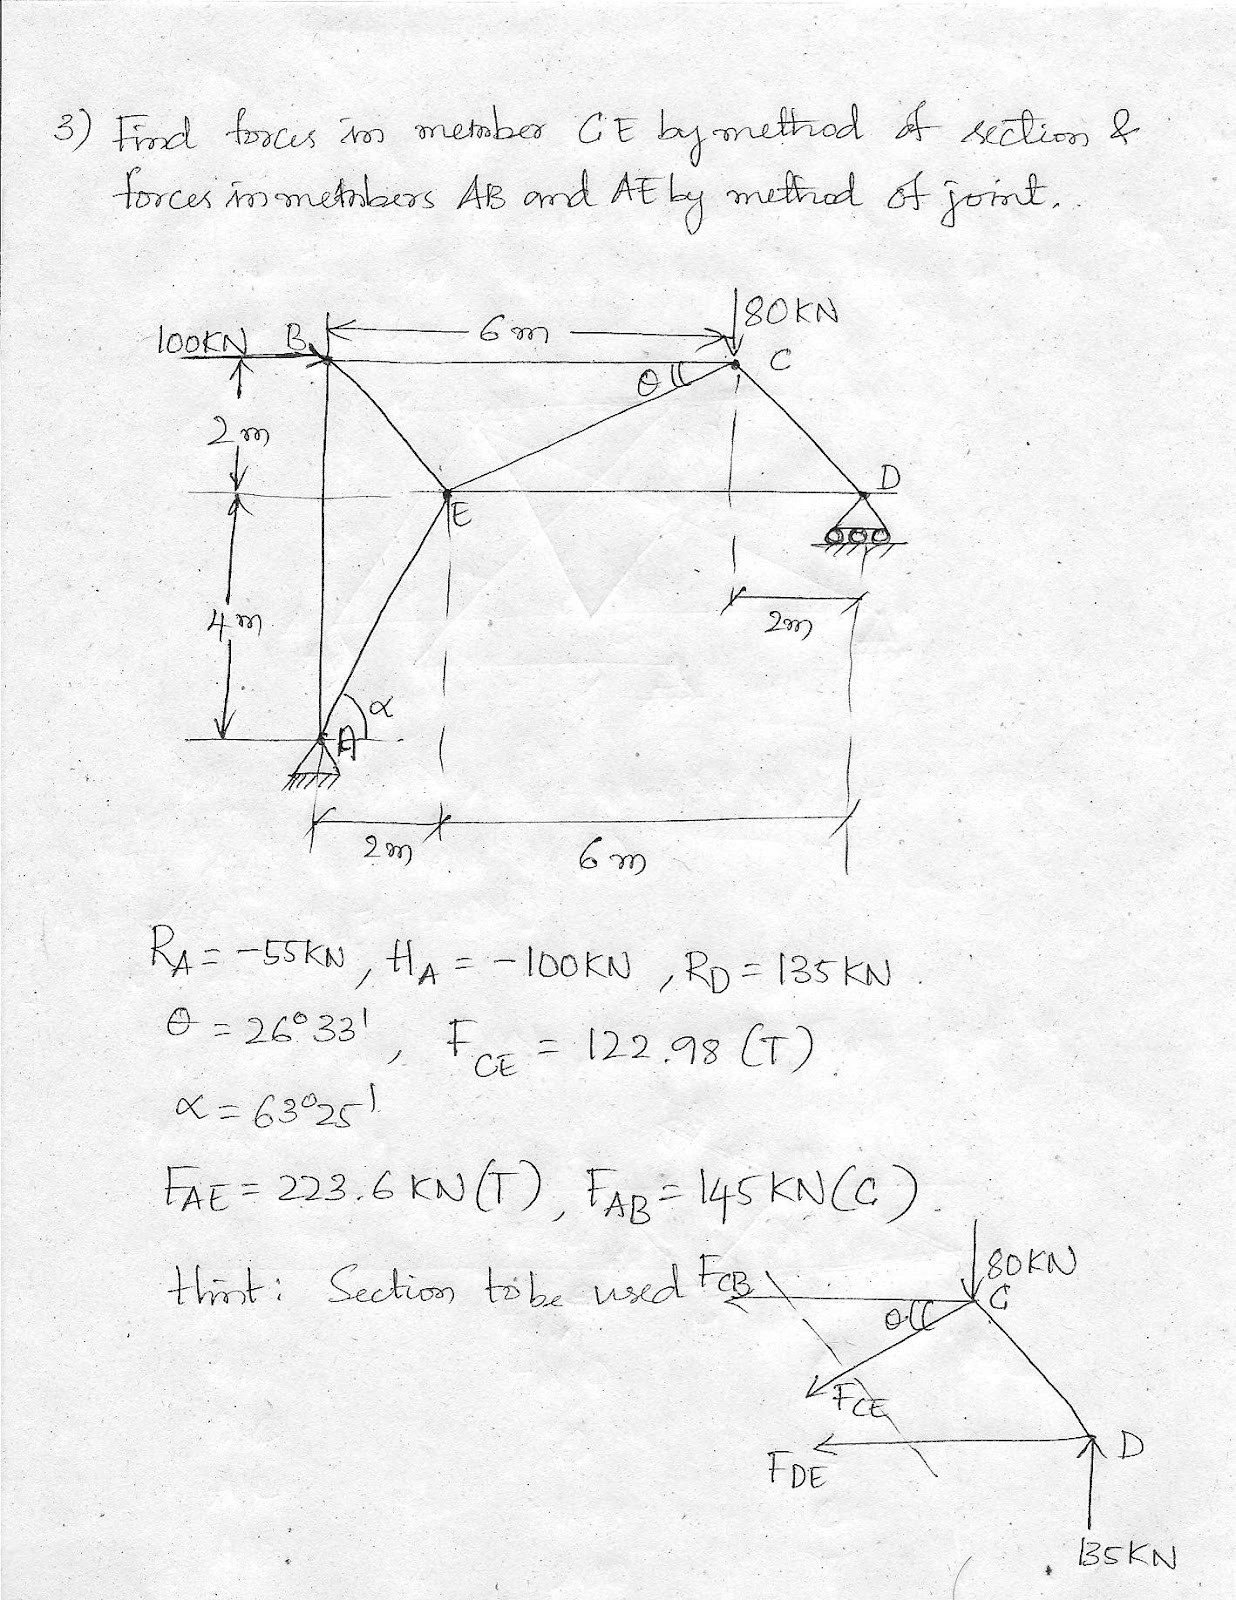 3) Find forces in member CE by method of section &
forces in members AB and AE by method of joint.
80KN
100KN B 6m C
θ
2m
D
E
4m
2m
α
A
2m 6m
RA = -55KN, HA = -100KN, RD = 135KN.
θ = 26°33', FCE = 122.98 (T).
α = 63°25'
FAE = 223.6 KN(T), FAB = 145KN(C).
Hint: Section to be used FCB 80KN
θ C
FCE
FDE D
135KN